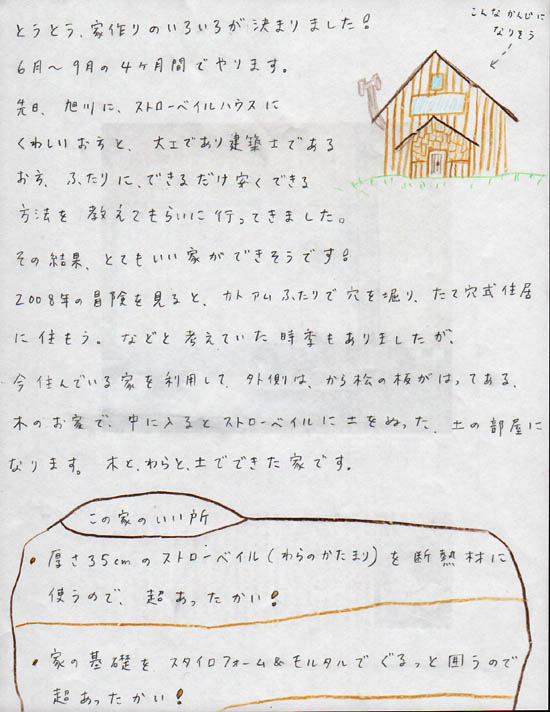 とうとう、家作りのいろいろが決まりました!
こんなかんじに
なりそう
6月〜9月の4ヶ月間でやります。
先日、旭川に、ストローベイルハウスに
くわしいお方と、大工であり建築士である
お方、ふたりに、できるだけ安くできる
方法を教えてもらいに行ってきました。
その結果、とてもいい家ができそうです!
2008年の冒険を見ると、カトアムふたりで穴を堀り、たて穴式住居
に住もう。などと考えていた時季もありましたが、
今住んでいる家を利用して、外側は、から松の板がはってある、
木のお家で、中に入るとストローベイルに土をぬった、土の部屋に
なります。木と、わらと、土でできた家です。
この家のいい所
・厚さ35cmのストローベイル(わらのかたまり)を断熱材に
使うので、超あったかい!
・家の基礎を、スタイロフォーム&モルタルでぐるっと囲うので
超あったかい!